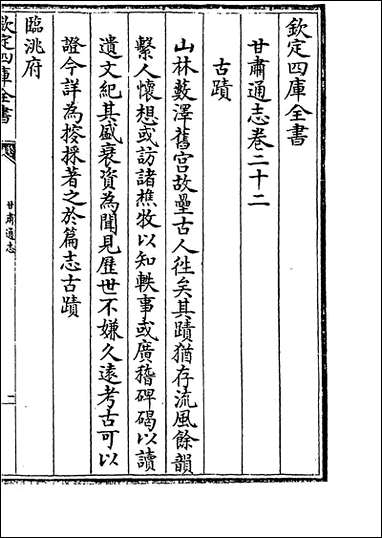 欽定四庫全書
甘肅通志卷二十二
古蹟
山林藪澤舊宫故壘古人徃矣其蹟猶存流風餘韻
繫人懷想或訪諸樵牧以知軼事或廣稽碑碣以讀
遺文紀其盛衰資為聞見歴世不嫌久遠考古可以
證今詳為搜採著之於篇志古蹟
臨洮府
欽定四庫全書
甘肅通志